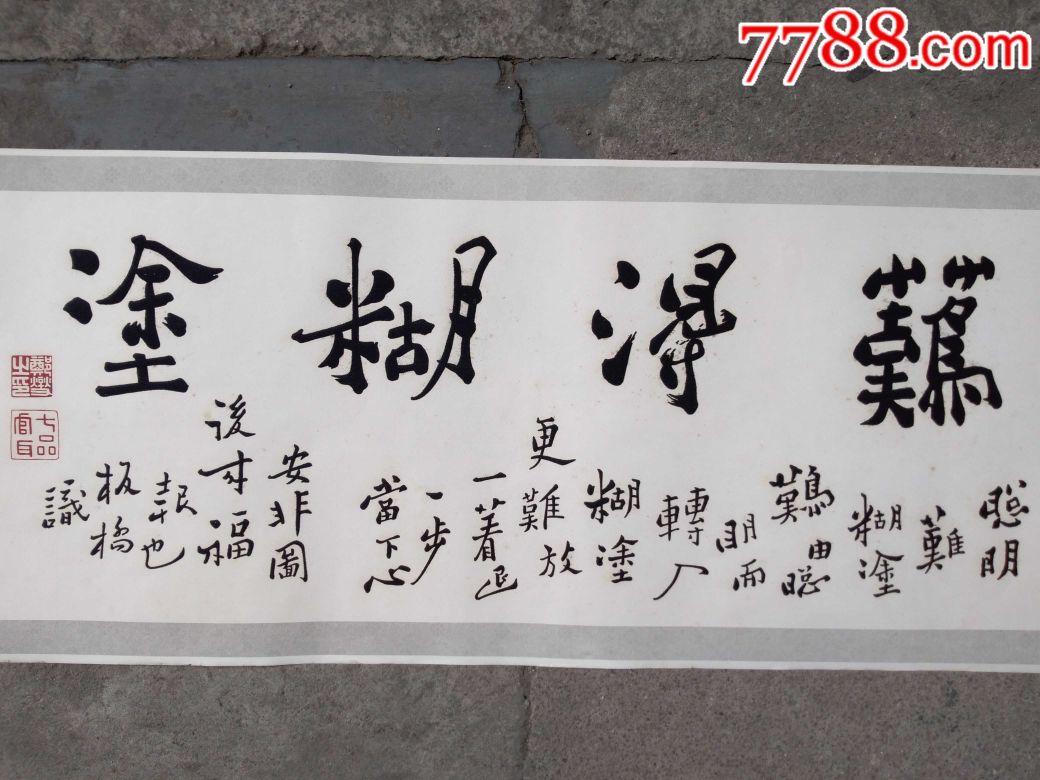 7788.com
難得糊塗
聰明
難
糊塗
難由聰
明而
轉入
糊塗
更難放
一著退
一步
當下心
安非圖
後來福
報也
板橋
識
鄭燮之印
七品官耳